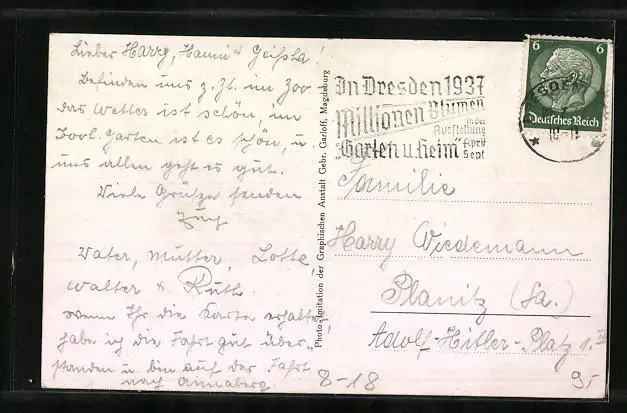 Lieber Harry, Hanni &
Befinden uns z. Zt. im Zoo
das Wetter ist schön, im
Zool. Garten ist es schön, u.
uns allen geht es gut.
Viele Grüße senden
Vater, Mutter, Lotte,
Walter & Ruth.
wenn Ihr die Karte erhaltet,
habe ich die Fahrt gut über-
standen u. bin auf der Fahrt
nach Annaberg.
8-18
Photo-Imitation der Graphischen Anstalt Gebr. Garloff, Magdeburg
In Dresden 1937
Millionen Blumen
in der
Ausstellung
"Garten u. Heim"
April
Sept
6 6
Deutsches Reich
Familie
Harry Wiedemann
Planitz (Sa.)
Adolf-Hitler-Platz 1.
9,-